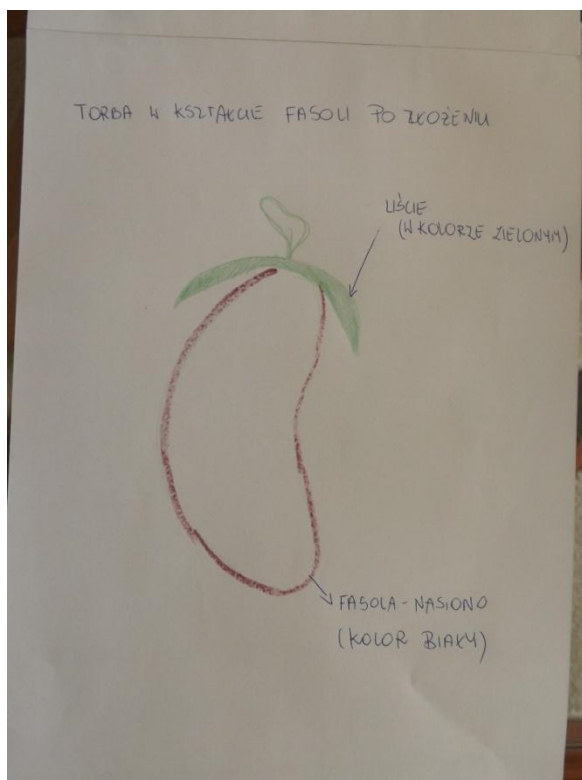 TORBA W KSZTAŁCIE FASOLI PO ZŁOŻENIU
LIŚCIE
(W KOLORZE ZIELONYM)
FASOLA - NASIONO
(KOLOR BIAŁY)